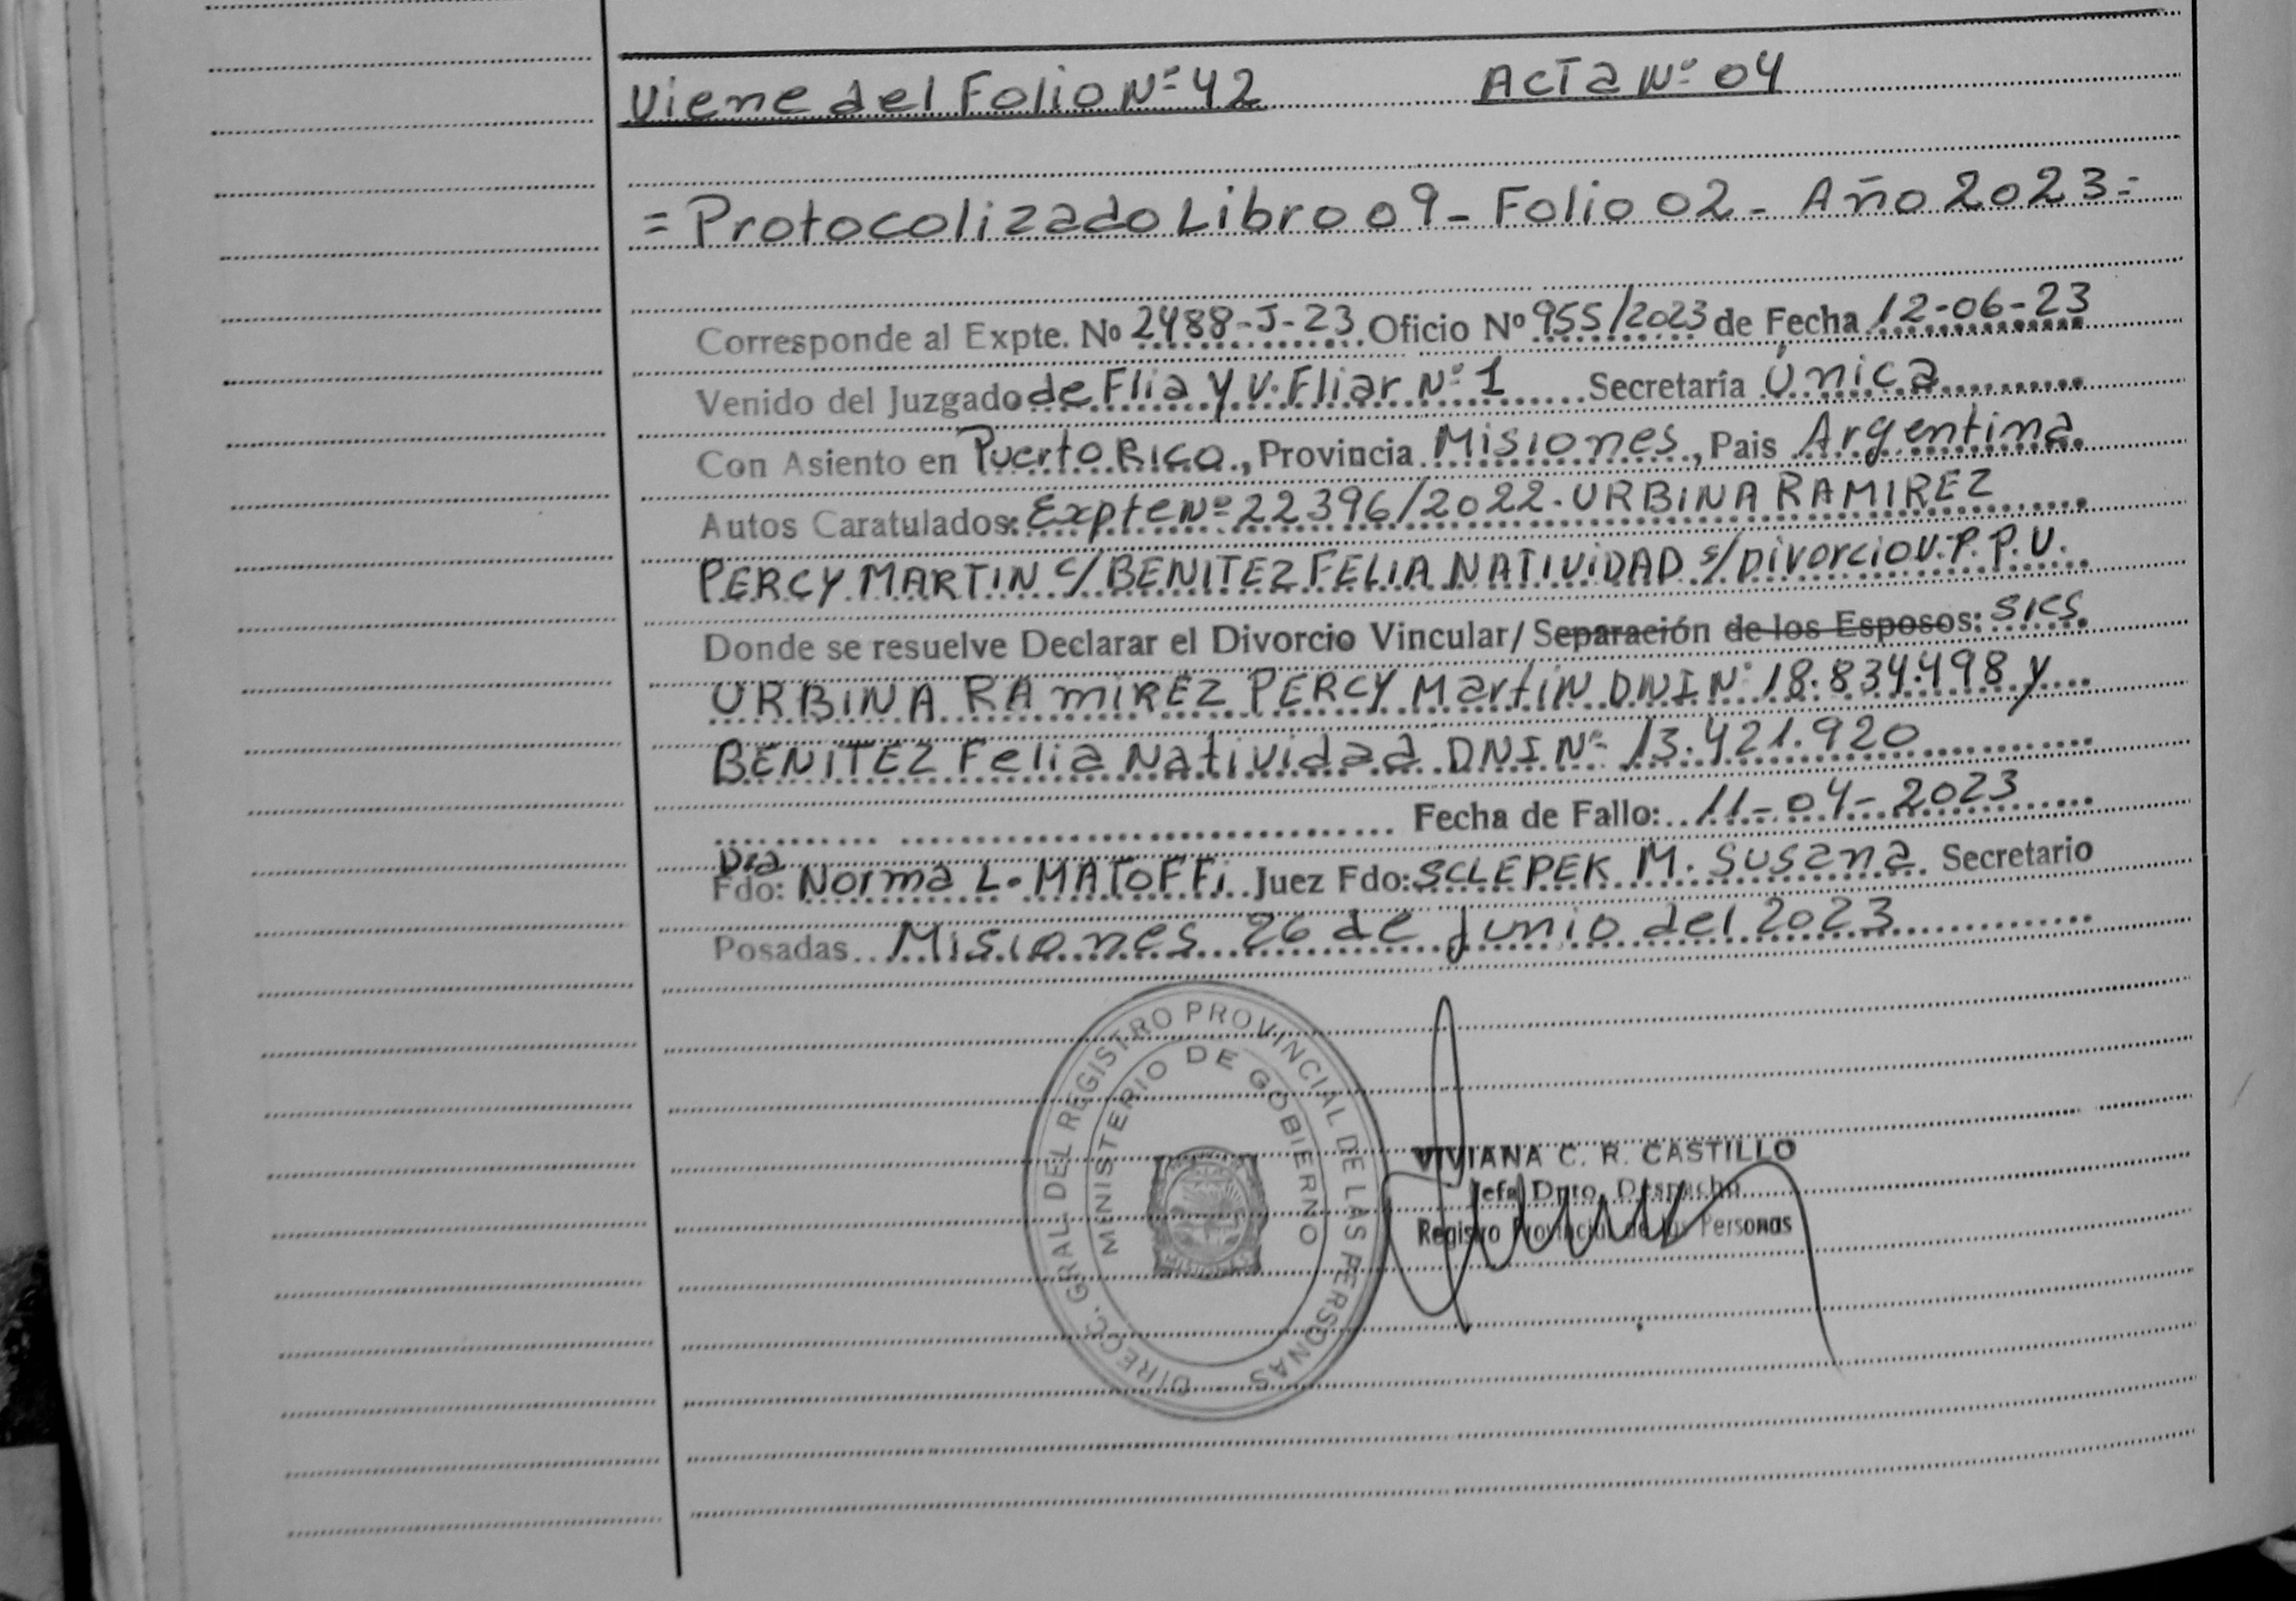 Viene del Folio Nº 42 Acta Nº 04
= Protocolizado Libro 09 - Folio 02 - Año 2023 =
Corresponde al Expte. Nº 2488-J-23 Oficio Nº 955/2023 de Fecha 12-06-23
Venido del Juzgado de Flia y V. Fliar Nº 1 Secretaría Única
Con Asiento en Puerto Rico, Provincia Misiones, Pais Argentina
Autos Caratulados: Expte Nº 22396/2022. URBINA RAMIREZ
PERCY MARTIN c/ BENITEZ FELIA NATIVIDAD s/ Divorcio V. P. P. U.
Donde se resuelve Declarar el Divorcio Vincular/ Separación de los Esposos: sres
URBINA RAMIREZ PERCY Martin DNI Nº 18.834.498 y
BENITEZ Felia Natividad DNI Nº 13.421.920
Fecha de Fallo: 11-04-2023
Dra
Fdo: Norma L. MATOFFi Juez Fdo: SCLEPEK M. Susana Secretario
Posadas Misiones 26 de Junio del 2023
DIRECC. GRAL. DEL REGISTRO PROVINCIAL DE LAS PERSONAS
MINISTERIO DE GOBIERNO
VIVIANA C. R. CASTILLO
Jefa Dpto. Despacho
Registro Provincial de las Personas